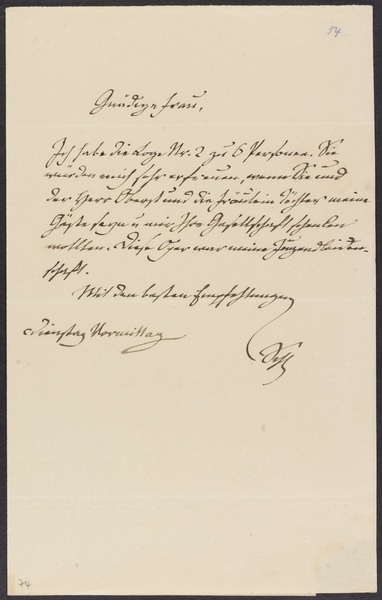 54
Gnädige Frau,
Ich habe die Loge Nr. 2 zu 6 Personen. Sie
würden mich sehr erfreuen, wenn Sie und
der Herr Oberst und die Fräulein Töchter meine
Gäste seyn u mir Ihre Gesellschaft schenken
wollten. Diese Oper war meine Jugendleiden-
schaft.
Mit den besten Empfehlungen
Dienstag Vormittag
74